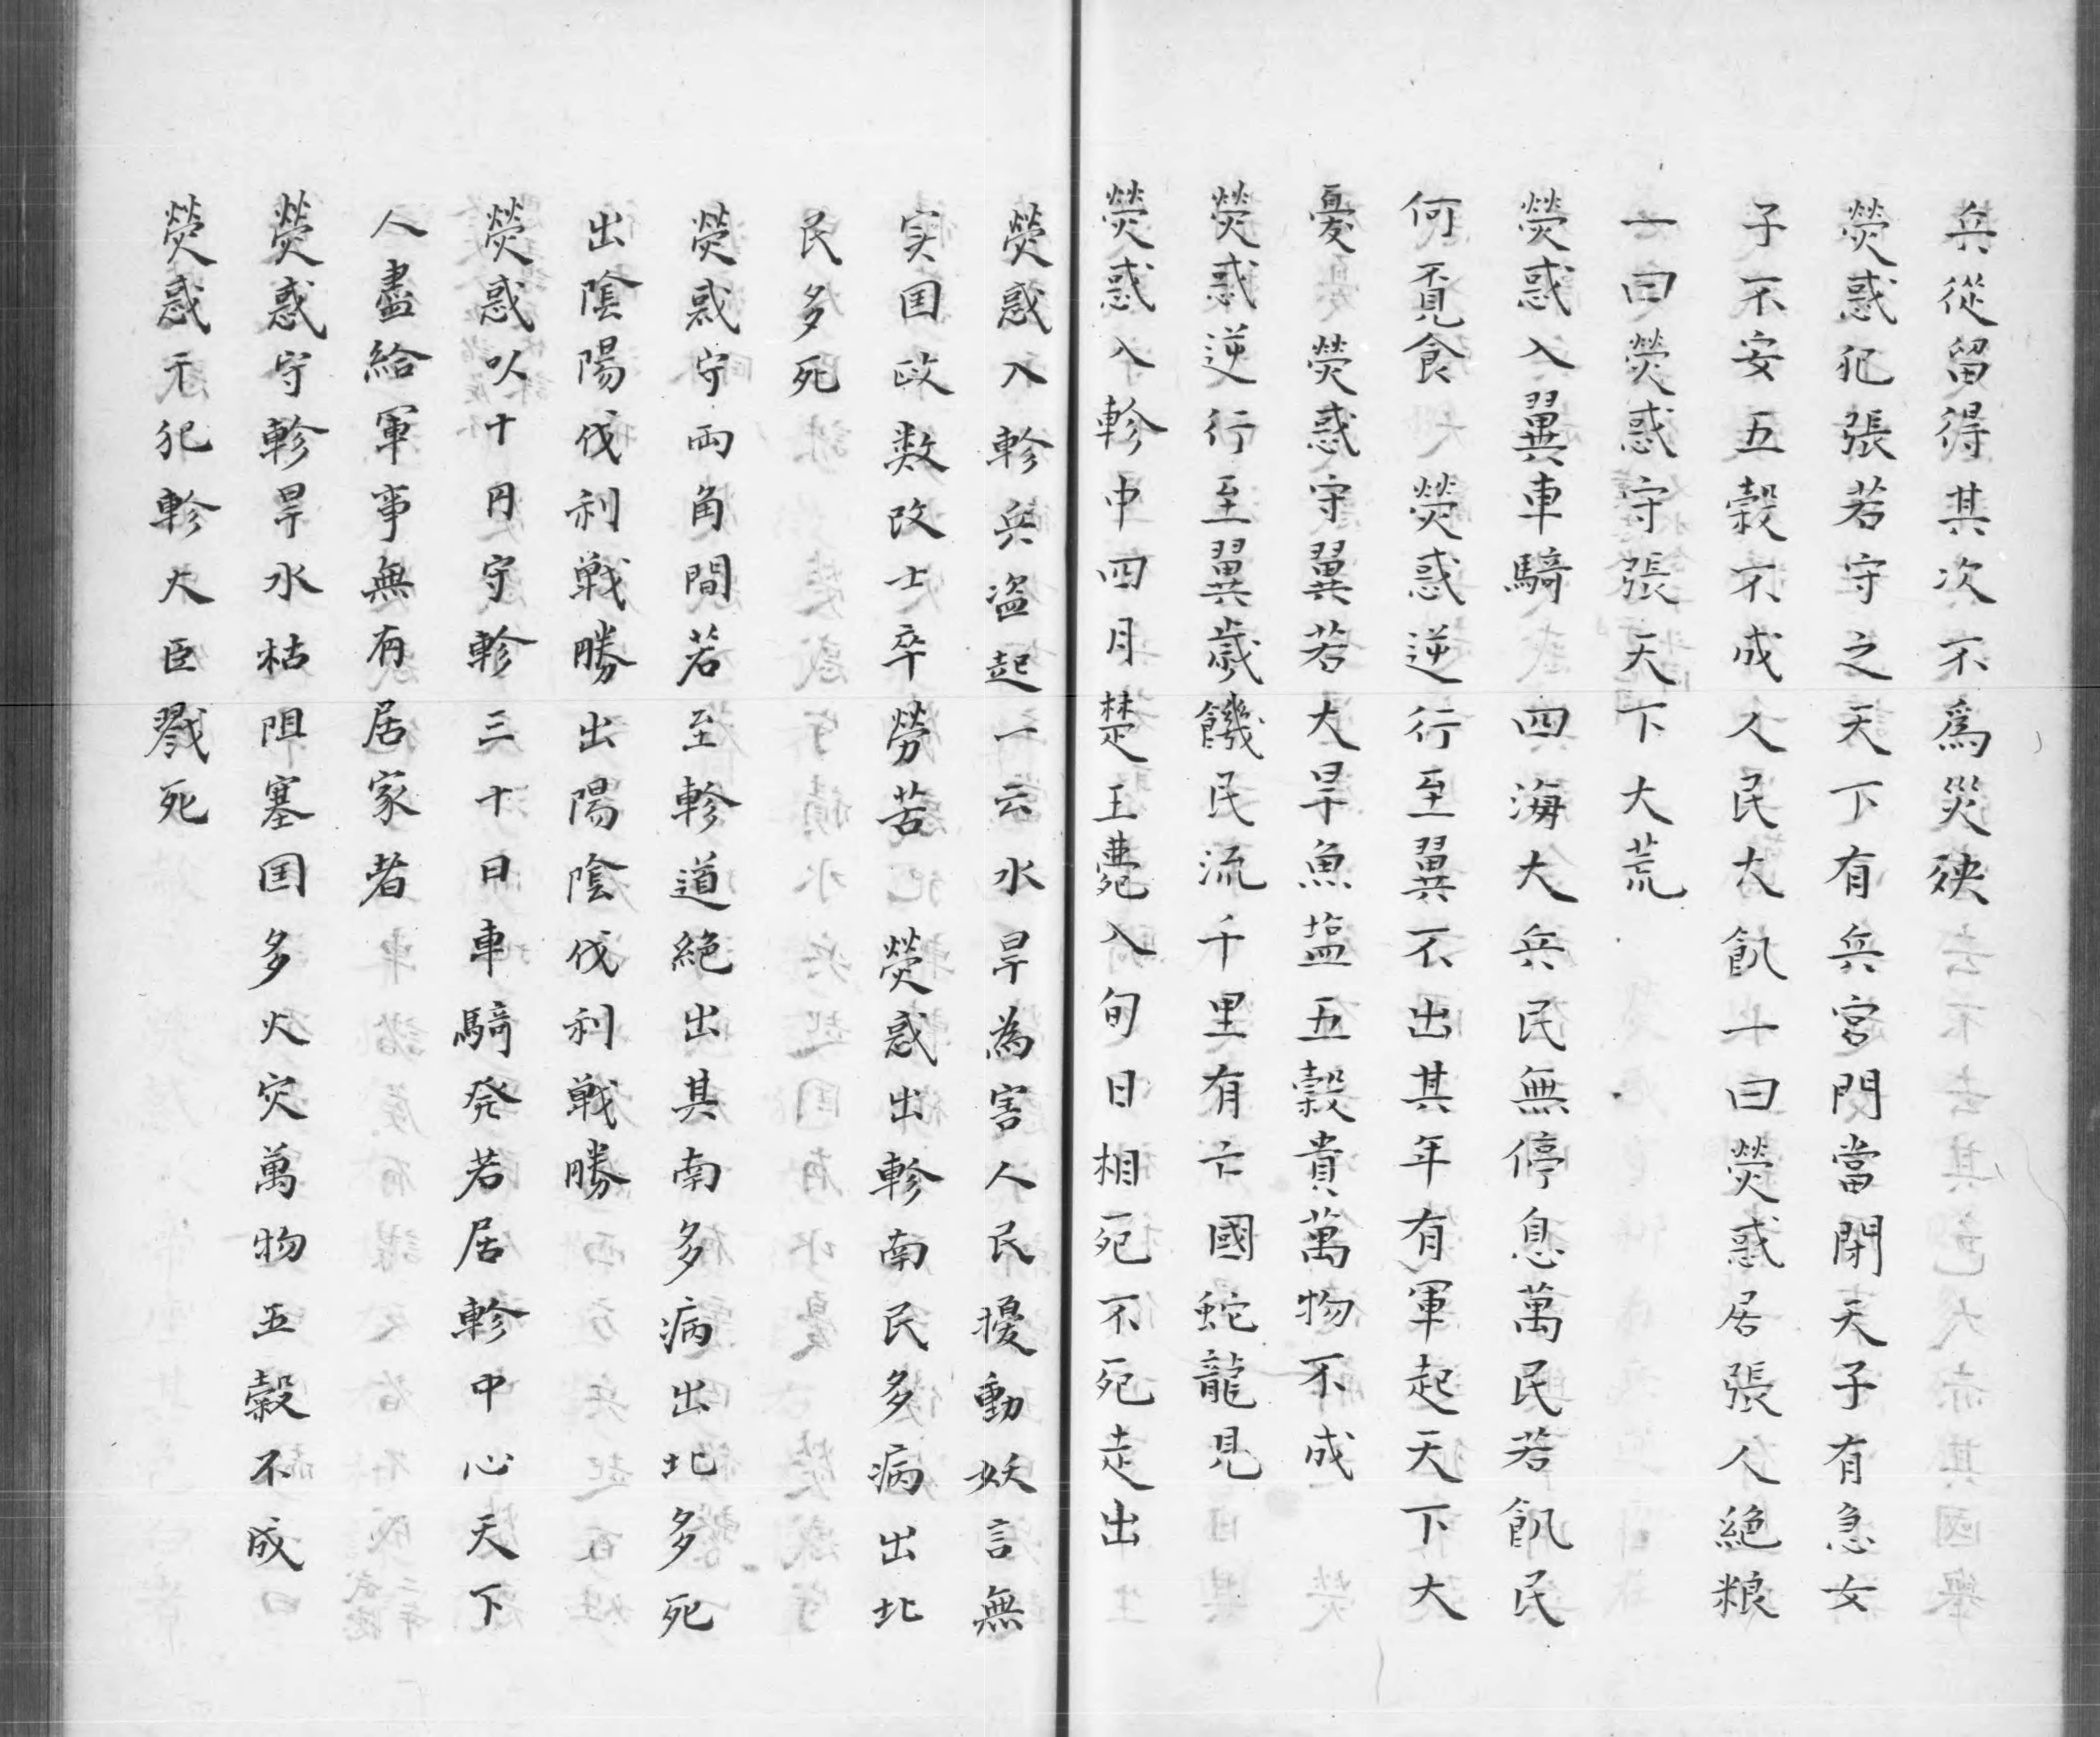 兵從留得其次不為災殃
熒惑犯張若守之天下有兵宮門當閉天子有急女
子不安五穀不成人民大飢一曰熒惑居張人絕粮
一曰熒惑守張天下大荒
熒惑入翼車騎四海大兵民無停息萬民若飢民
何覔食　熒惑逆行至翼不出其年有軍起天下大
憂　熒惑守翼若大旱魚塩五穀貴萬物不成
熒惑逆行至翼歲饑民流千里有亡國蛇龍見
熒惑入軫中四月楚王薨入旬日相死不死走出
熒惑入軫兵盗起一云水旱為害人民擾動妖言無
実囯政数改士卒勞苦　熒惑出軫南民多病出北
民多死
熒惑守両角間若至軫道絕出其南多病出北多死
出陰陽伐利戦勝出陽陰伐利戦勝
熒惑以十月守軫三十日車騎発若居軫中心天下
人盡給軍事無有居家者
熒惑守軫旱水枯阻塞囯多火灾萬物五穀不成
熒惑干犯軫大臣戮死